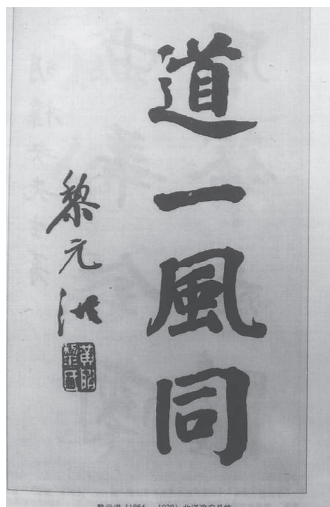 道一風同
黎元洪